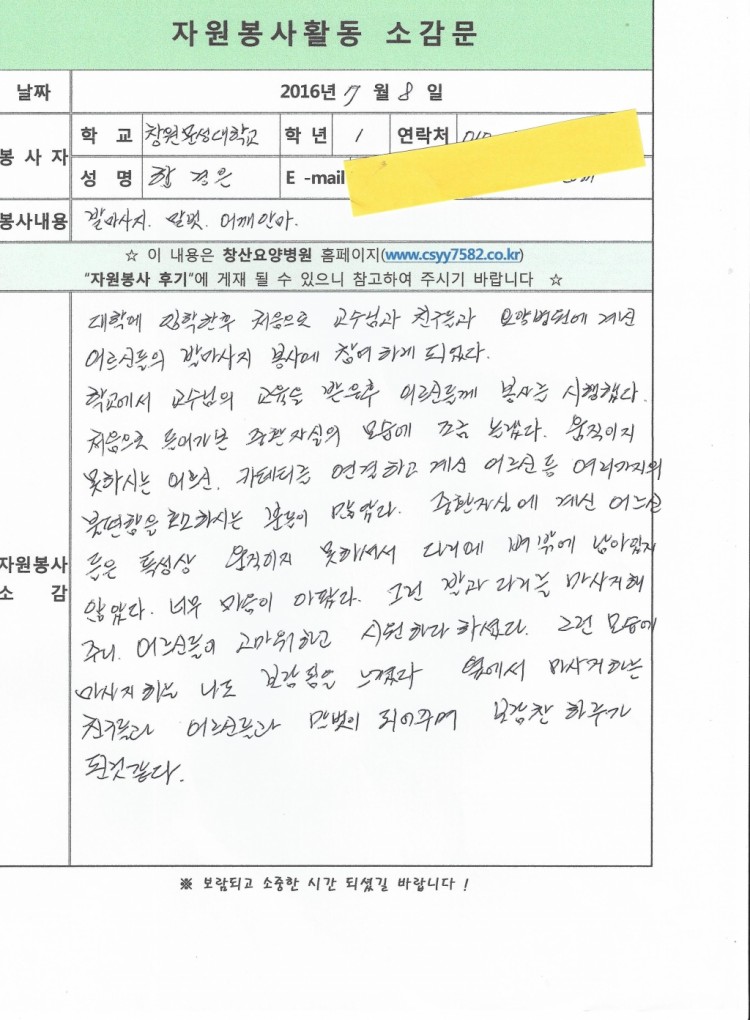 자원봉사활동 소감문
날짜 2016년 7 월 8 일
봉 사 자
학 교 창원문성대학교 학 년 1 연락처 010
성 명 경은 E -mail
봉사내용 발마사지. 말벗. 어깨안마.
☆ 이 내용은 창산요양병원 홈페이지(www.csyy7582.co.kr)
"자원봉사 후기"에 게재 될 수 있으니 참고하여 주시기 바랍니다 ☆
자원봉사
소 감
대학에 입학한후 처음으로 교수님과 친구들과 요양병원에 계신
어르신들의 발마사지 봉사에 참여하게 되었다.
학교에서 교수님의 교육을 받은후 어르신들께 봉사를 시행했다.
처음으로 들어가본 중환자실의 모습에 조금 놀랬다. 움직이지
못하시는 어르신. 카테터를 연결하고 계신 어르신 등 여러가지의
불편함을 호소하시는 분들이 많았다. 중환자실에 계신 어르신
들은 특성상 움직이지 못하셔서 다리에 뼈밖에 남아있지
않았다. 너무 마음이 아팠다. 그런 발과 다리를 마사지해
주니. 어르신들이 고마워하고 시원하다 하셨다. 그런 모습에
마사지하는 나도 보람됨을 느꼈다 옆에서 마사지하는
친구들과 어르신들과 말벗이 되어주며 보람찬 하루가
된것같다.
※ 보람되고 소중한 시간 되셨길 바랍니다 !